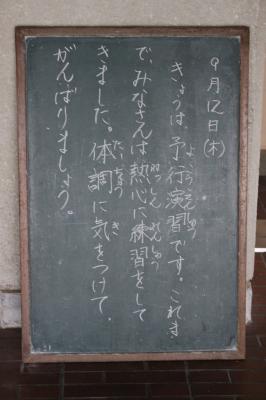 9月12日(木)
きょうは、予行演習です。これま
で、みなさんは熱心に練習をして
きました。体調に気をつけて、
がんばりましょう。